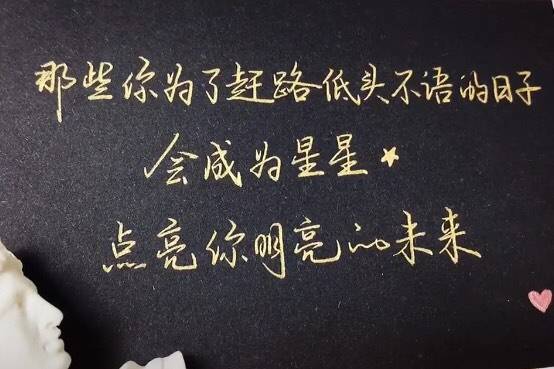 那些你为了赶路低头不语的日子
会成为星星
点亮你明亮的未来